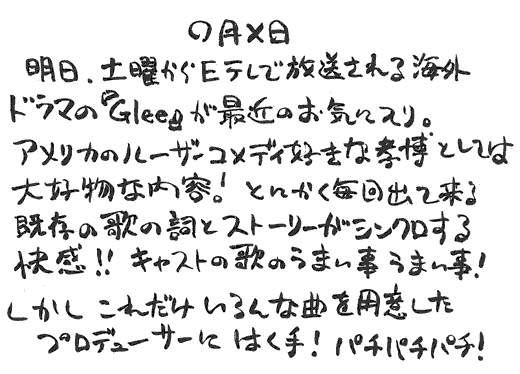 〇月×日
明日、土曜からEテレで放送される海外
ドラマの『Glee』が最近のお気に入り。
アメリカのルーザーコメディ好きな孝博としては
大好物な内容!とにかく毎回出て来る
既存の歌の詞とストーリーがシンクロする
快感!!キャストの歌のうまい事うまい事!
しかしこれだけいろんな曲を用意した
プロデューサーにはく手!パチパチパチ!